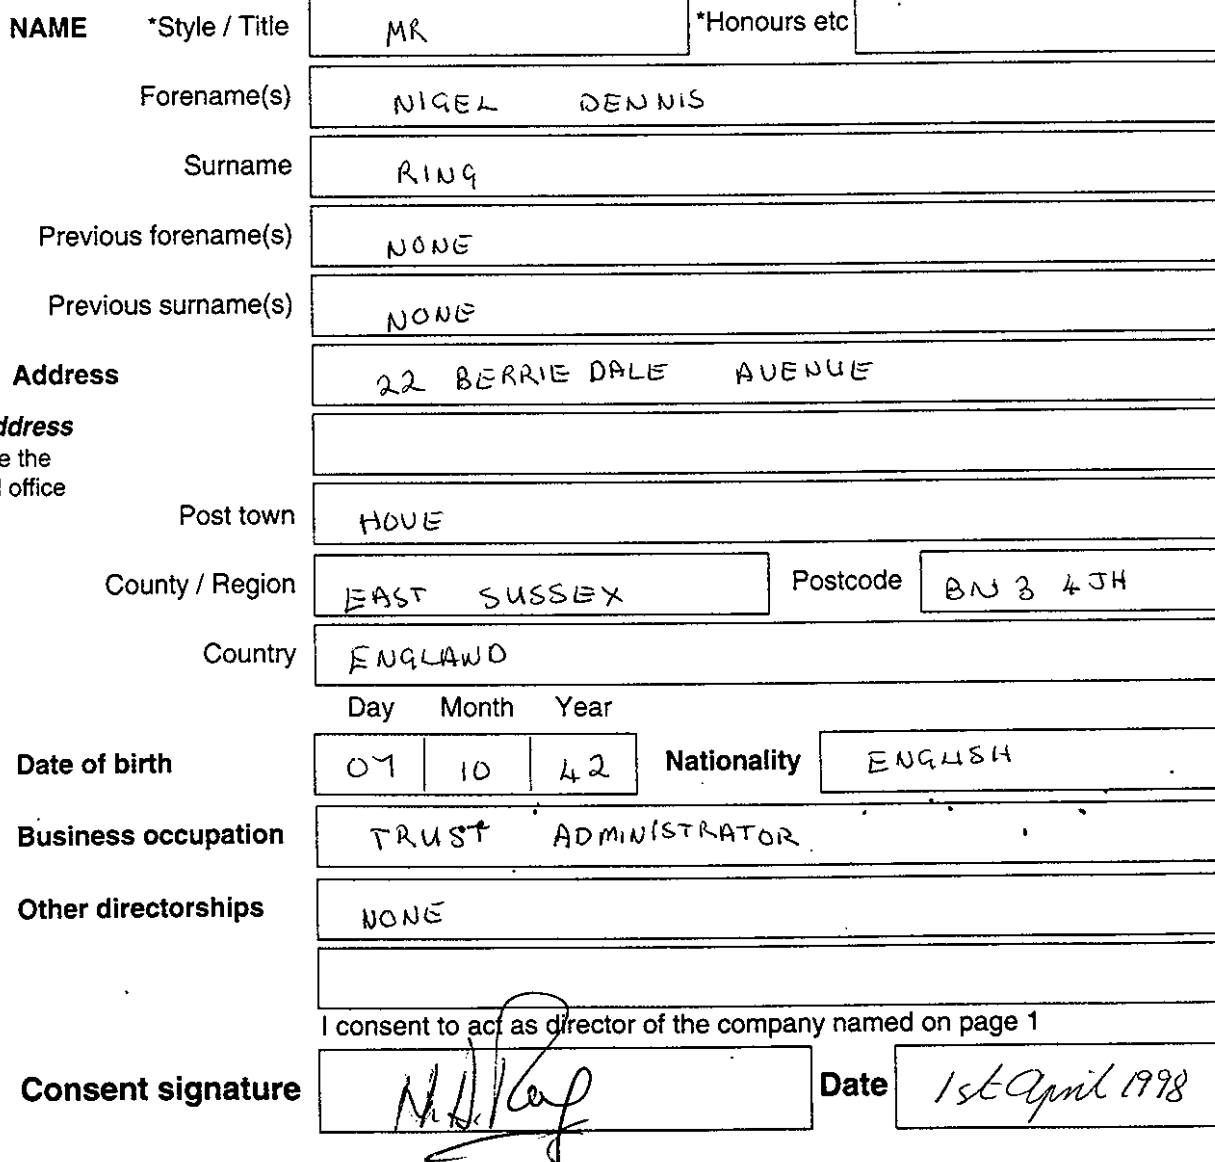 NAME *Style / Title MR *Honours etc
Forename(s) NIGEL DENNIS
Surname RING
Previous forename(s) NONE
Previous surname(s) NONE
Address 22 BERRIE DALE AVENUE
ddress
e the
l office
Post town HOVE
County / Region EAST SUSSEX Postcode BN3 4JH
Country ENGLAND
Day Month Year
Date of birth 07 10 42 Nationality ENGLISH
Business occupation TRUST ADMINISTRATOR
Other directorships NONE
I consent to act as director of the company named on page 1
Consent signature N.D. Ring Date 1st April 1998